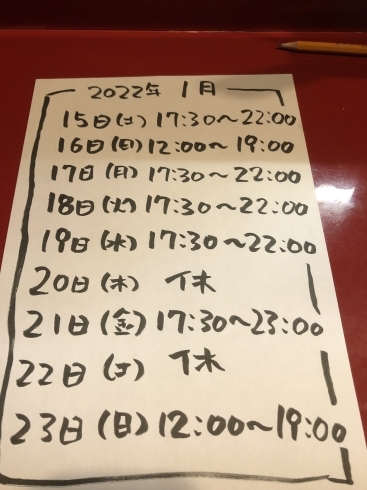 2022年 1月
15日(土)17:30〜22:00
16日(日)12:00〜19:00
17日(月)17:30〜22:00
18日(火)17:30〜22:00
19日(水)17:30〜22:00
20日(木) 休
21日(金)17:30〜23:00
22日(土) 休
23日(日)12:00〜19:00